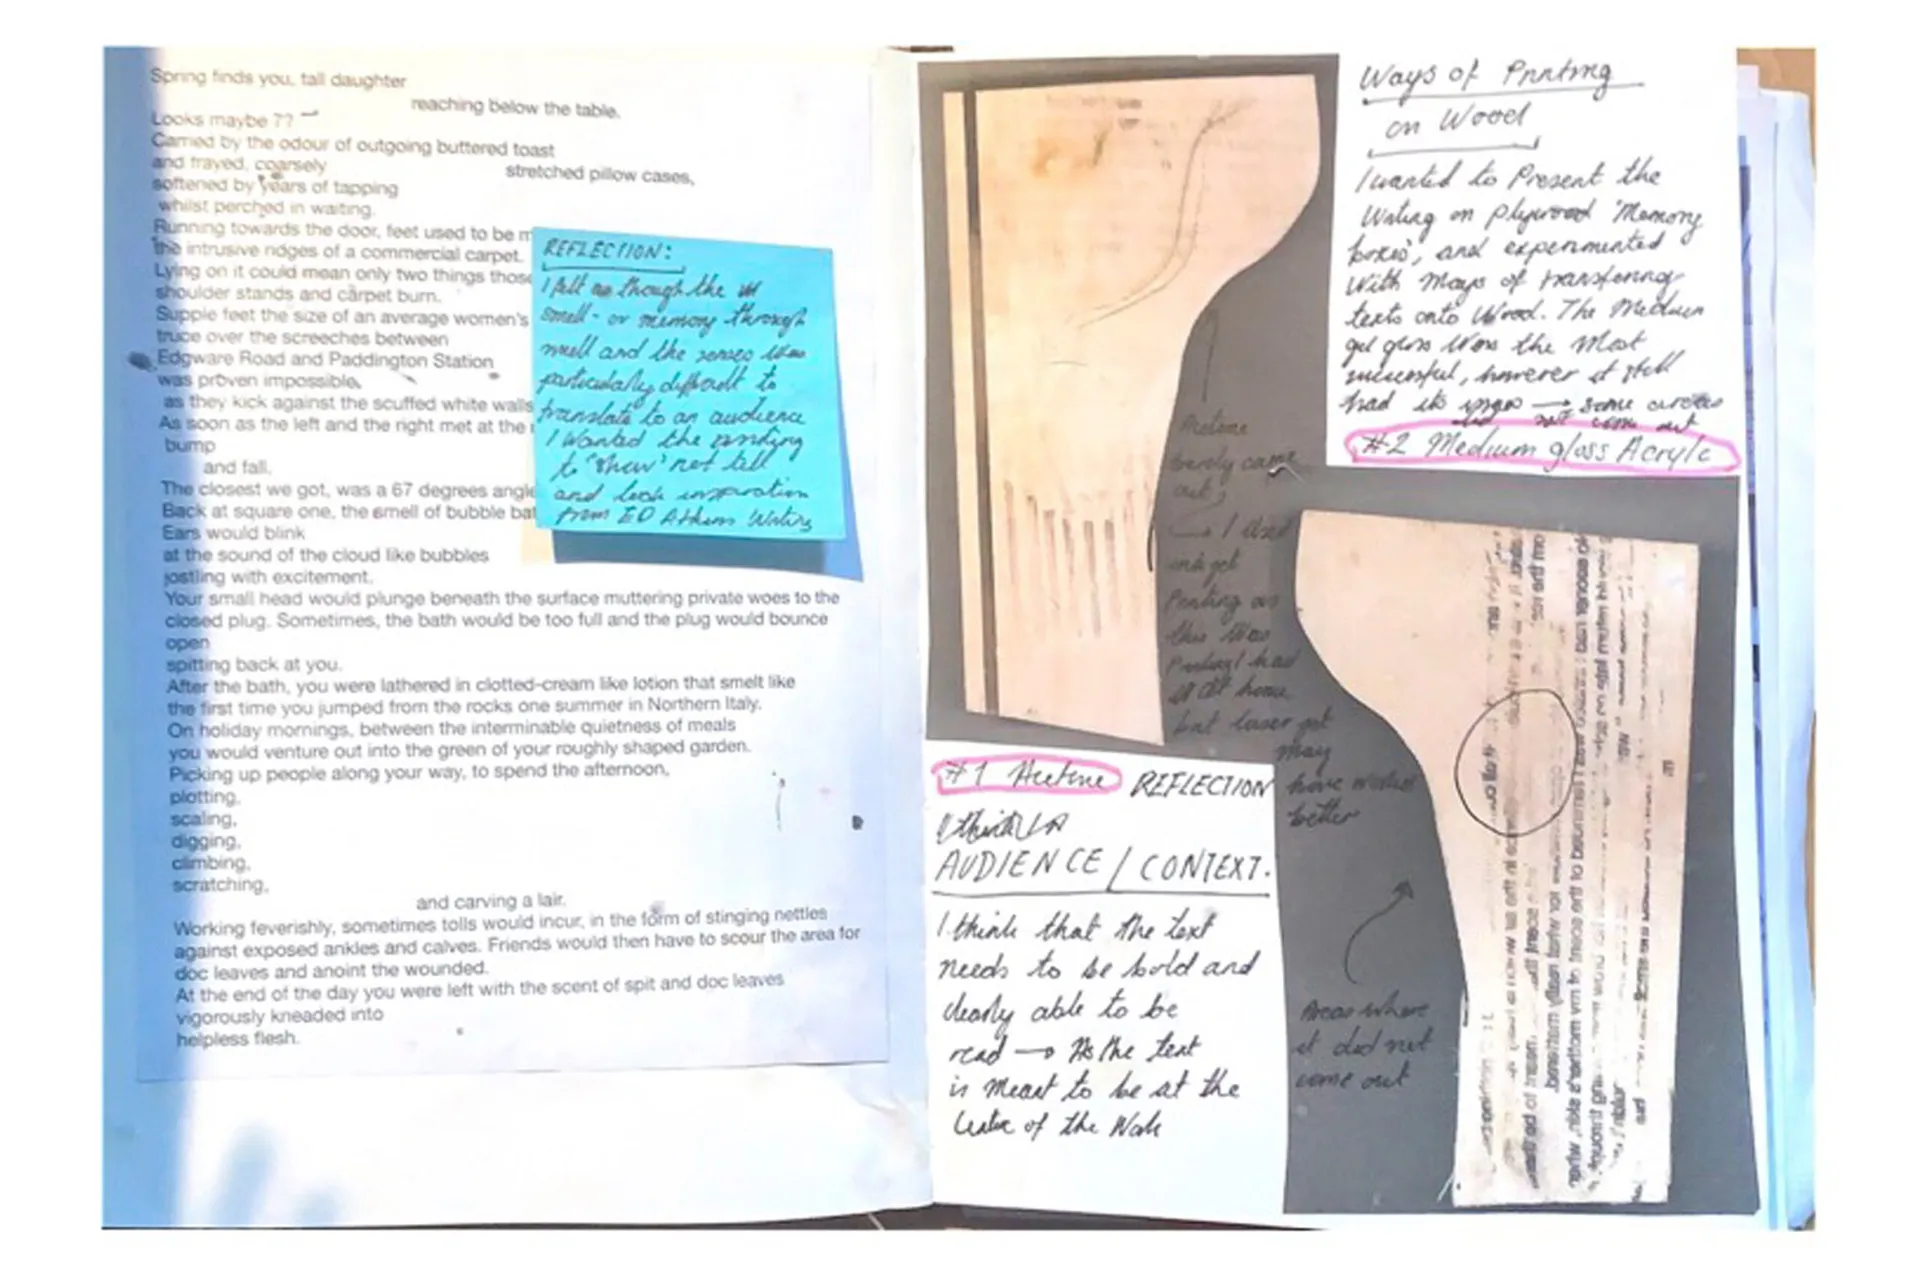 Spring finds you, tall daughter
reaching below the table.
Looks maybe 7?
Carried by the odour of outgoing buttered toast
and frayed, coarsely
stretched pillow cases,
softened by years of tapping
whilst perched in waiting.
Running towards the door, feet used to be
the intrusive ridges of a commercial carpet.
Lying on it could mean only two things
shoulder stands and carpet burn.
Supple feet the size of an average women's
truce over the screeches between
Edgware Road and Paddington Station
was proven impossible,
as they kick against the scuffed white walls
As soon as the left and the right met at the
bump
and fall.
The closest we got, was a 67 degrees angle
Back at square one, the smell of bubble
Ears would blink
at the sound of the cloud like bubbles
jostling with excitement.
Your small head would plunge beneath the surface muttering private woes to the
closed plug. Sometimes, the bath would be too full and the plug would bounce
open
spitting back at you.
After the bath, you were lathered in clotted-cream like lotion that smelt like
the first time you jumped from the rocks one summer in Northern Italy.
On holiday mornings, between the interminable quietness of meals
you would venture out into the green of your roughly shaped garden.
Picking up people along your way, to spend the afternoon,
plotting,
scaling,
digging,
climbing,
scratching,
and carving a lair.
Working feverishly, sometimes tolls would incur, in the form of stinging nettles
against exposed ankles and calves. Friends would then have to scour the area for
doc leaves and anoint the wounded.
At the end of the day you were left with the scent of spit and doc leaves
vigorously kneaded into
helpless flesh.
REFLECTION:
I felt as though the
smell - or memory through
smell and the senses was
particularly difficult to
translate to an audience
I wanted the writing
to 'show' not tell
and took inspiration
from ED Atkins Writing
Acetone
barely came
out,
→ I used
ink jet
Printing as
this was
Printing I had
at home
but laser jet
may
have worked
better
#1 Acetone REFLECTION
I think
AUDIENCE / CONTEXT.
I think that the text
needs to be bold and
clearly able to be
read → As the text
is meant to be at the
Centre of the Work
Ways of Printing
on Wood
I wanted to Present the
Writing on plywood 'Memory
boxes', and experimented
With Ways of transferring
texts onto Wood. The Medium
gel gloss Was the Most
successful, however it still
had its → some areas
did not come out
#2 Medium gloss Acrylic
Areas where
it did not
come out